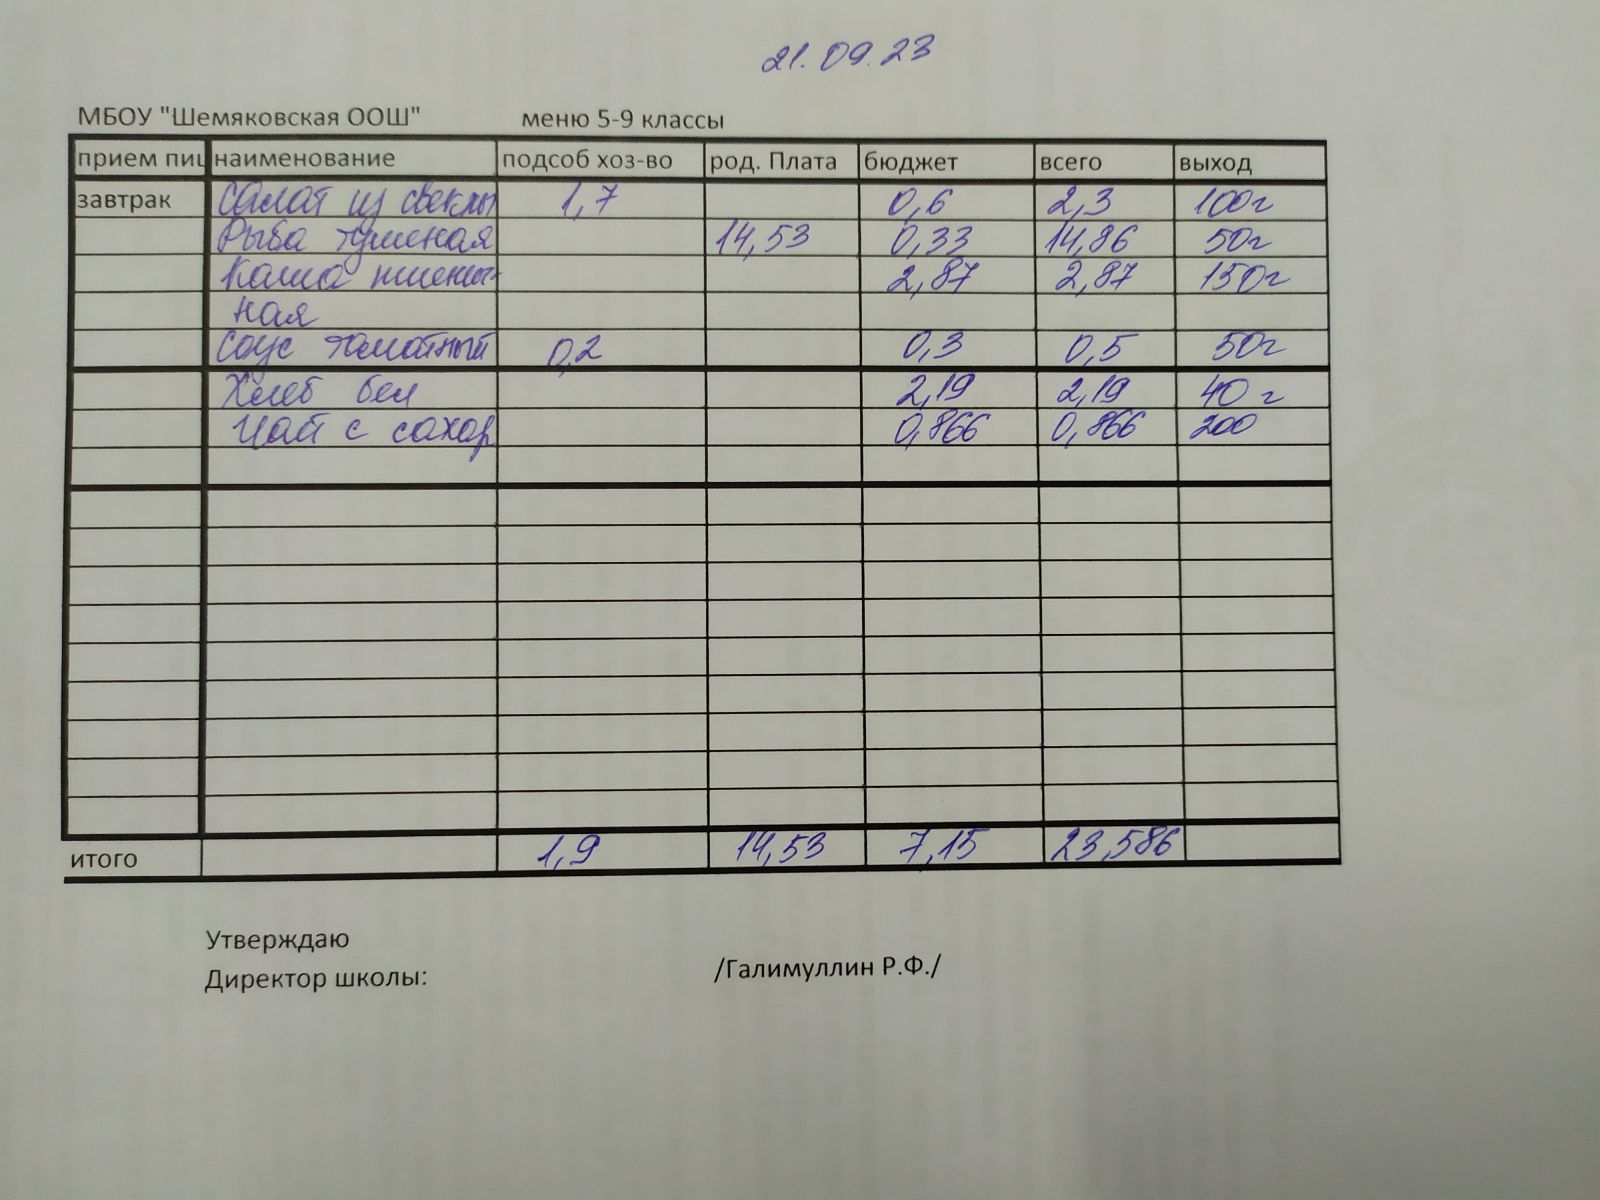 21.09.23
МБОУ "Шемяковская ООШ" меню 5-9 классы
прием пищ наименование подсоб хоз-во род. Плата бюджет всего выход
завтрак Салат из свеклы 1,7 0,6 2,3 100г
Рыба тушеная 14,53 0,33 14,86 50г
Каша пшенич- 2,87 2,87 150г
ная
Соус томатный 0,2 0,3 0,5 50г
Хлеб бел 2,19 2,19 40 г
Чай с сахар 0,866 0,866 200
итого 1,9 14,53 7,15 23,586
Утверждаю
Директор школы: /Галимуллин Р.Ф./